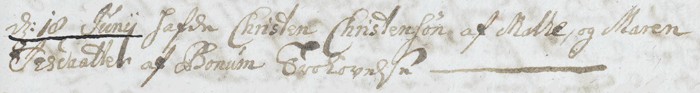 d: 18 Junij hafde Christen Christensøn af Malle, og Maren
Jesdaatter af Bonum Trolovelse